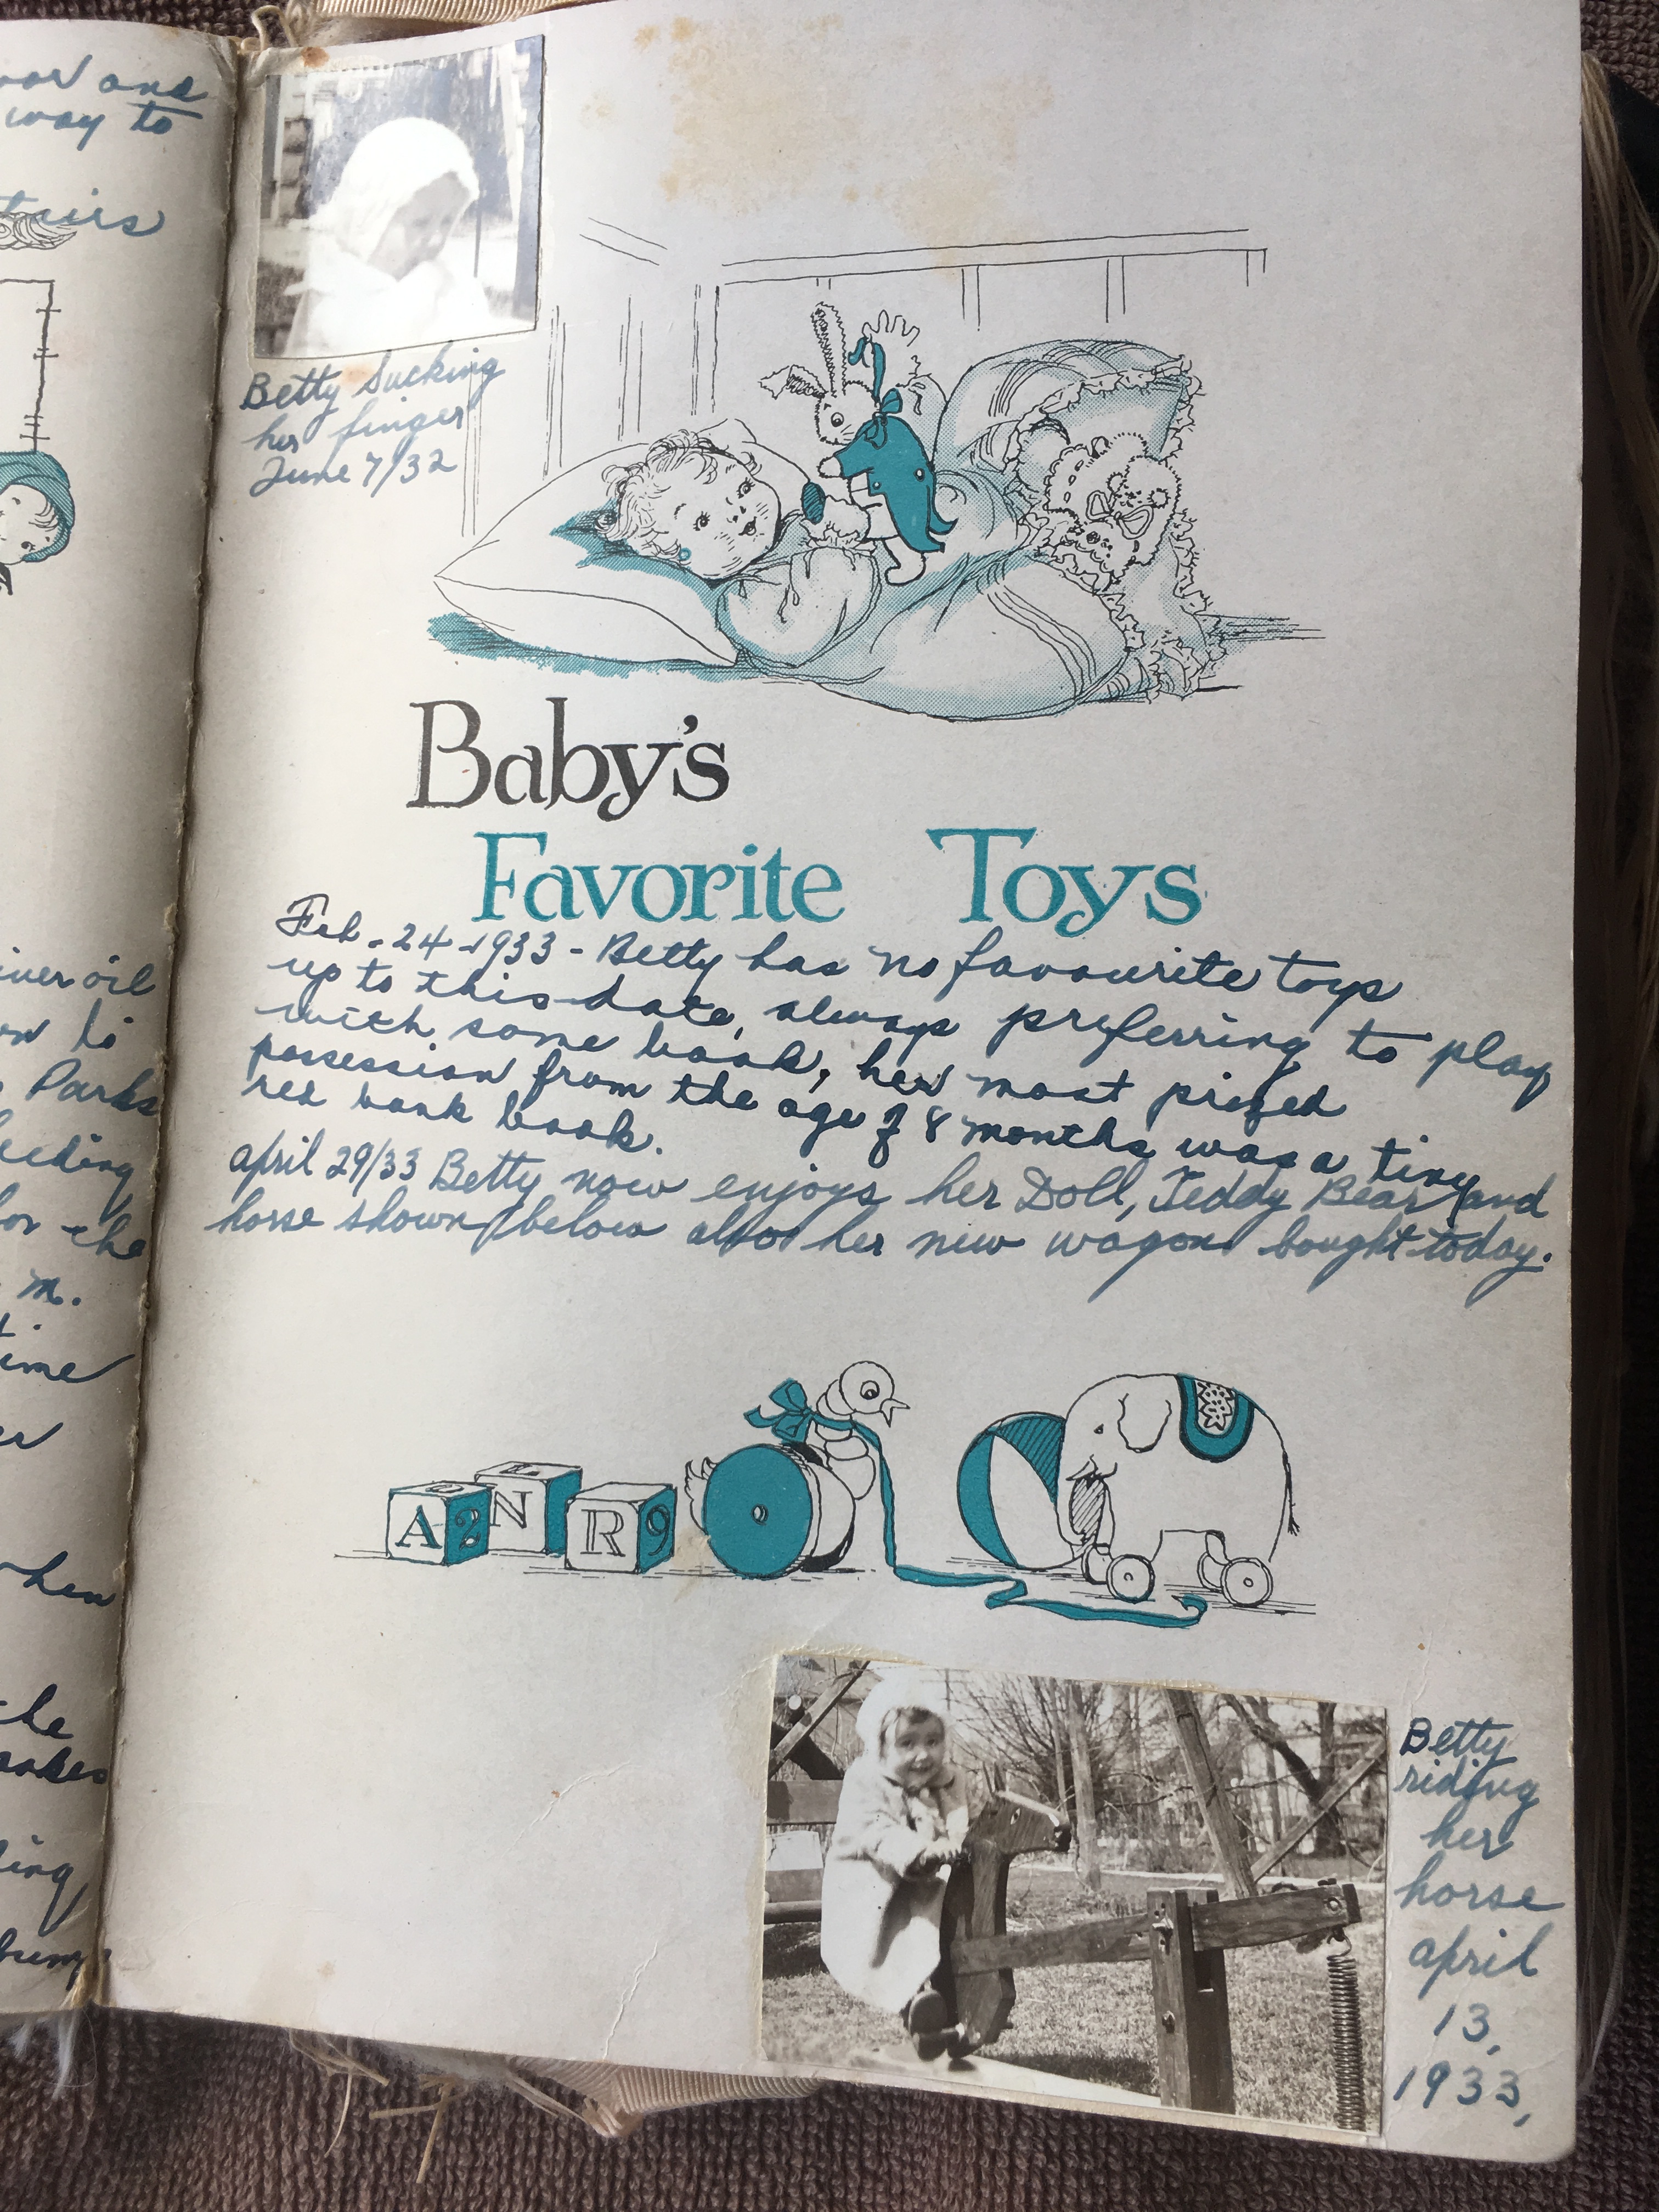 and
way to
Betty sucking
her finger
June 7/32
Baby's
Favorite Toys
Feb-24-1933-Betty has no favourite toys
up to this date, always preferring to play
with some book, her most prized
possession from the age of 8 months was a tiny
red bank book.
april 29/33 Betty now enjoys her Doll, Teddy Bear and
horse shown below also her new wagon bought today.
A 2 N R 9
Betty
riding
her
horse
april
13,
1933,
oil
Parks
the
m.